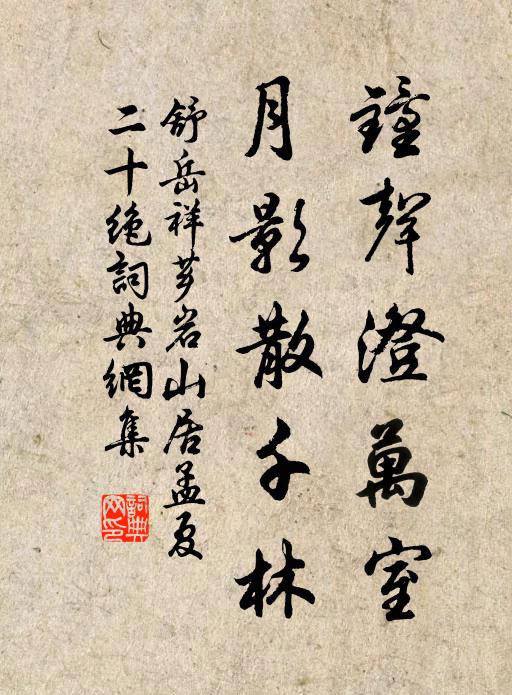 鐘聲澄萬室
月影散千林
舒岳祥芗岩山居孟夏
二十絶詞典網集
詞典网印